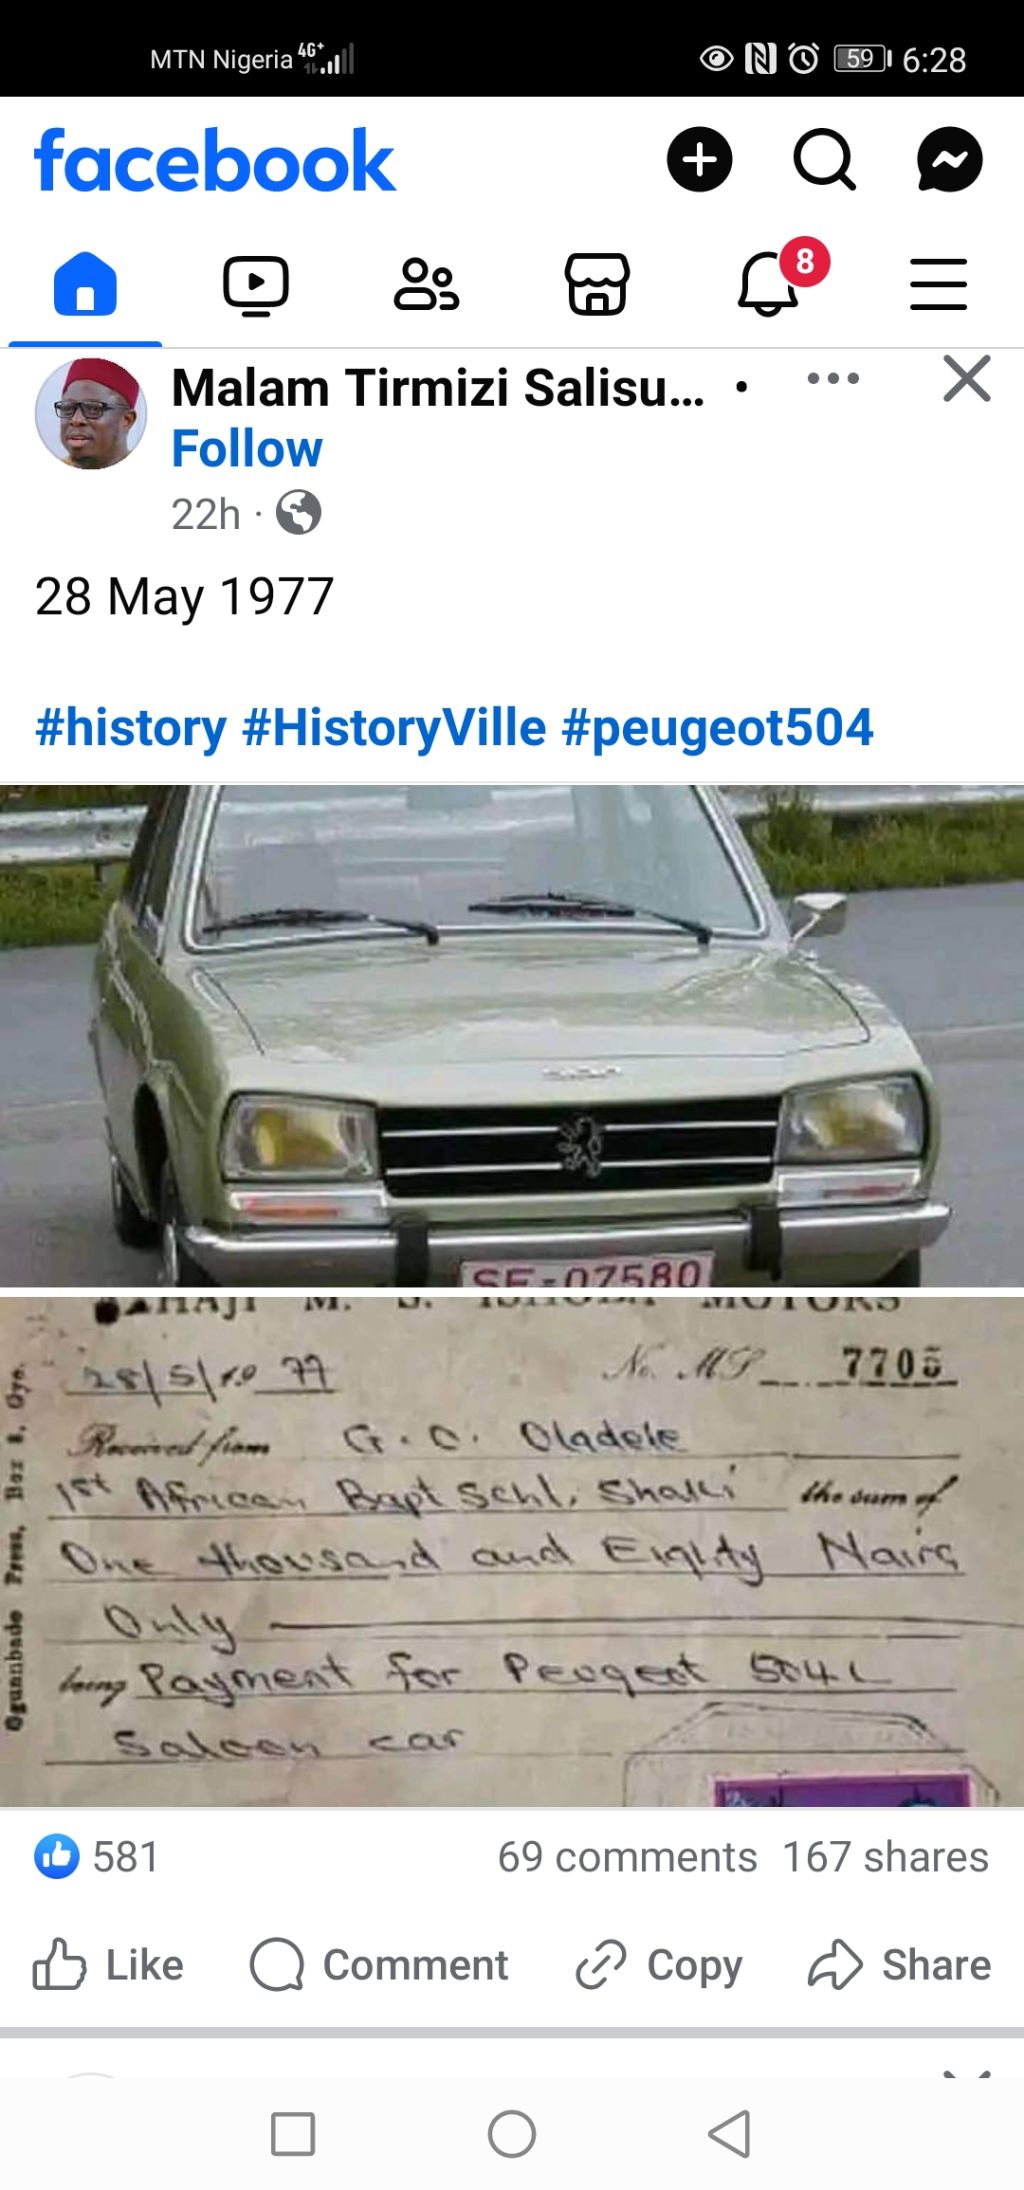 MTN Nigeria 4G+ 59 6:28
facebook
8
Malam Tirmizi Salisu... •
Follow
22h ·
28 May 1977
#history #HistoryVille #peugeot504
SE-07580
MOTORS
28/5/19 77 No. MP 7705
Received from G. O. Oladele
1st African Bapt Schl, Shaki the sum of
One thousand and Eighty Naira
Only
being Payment for Peugeot 504L
Saloon car
Ogunnbade Press, Box 8, Oyo.
581 69 comments 167 shares
Like Comment Copy Share